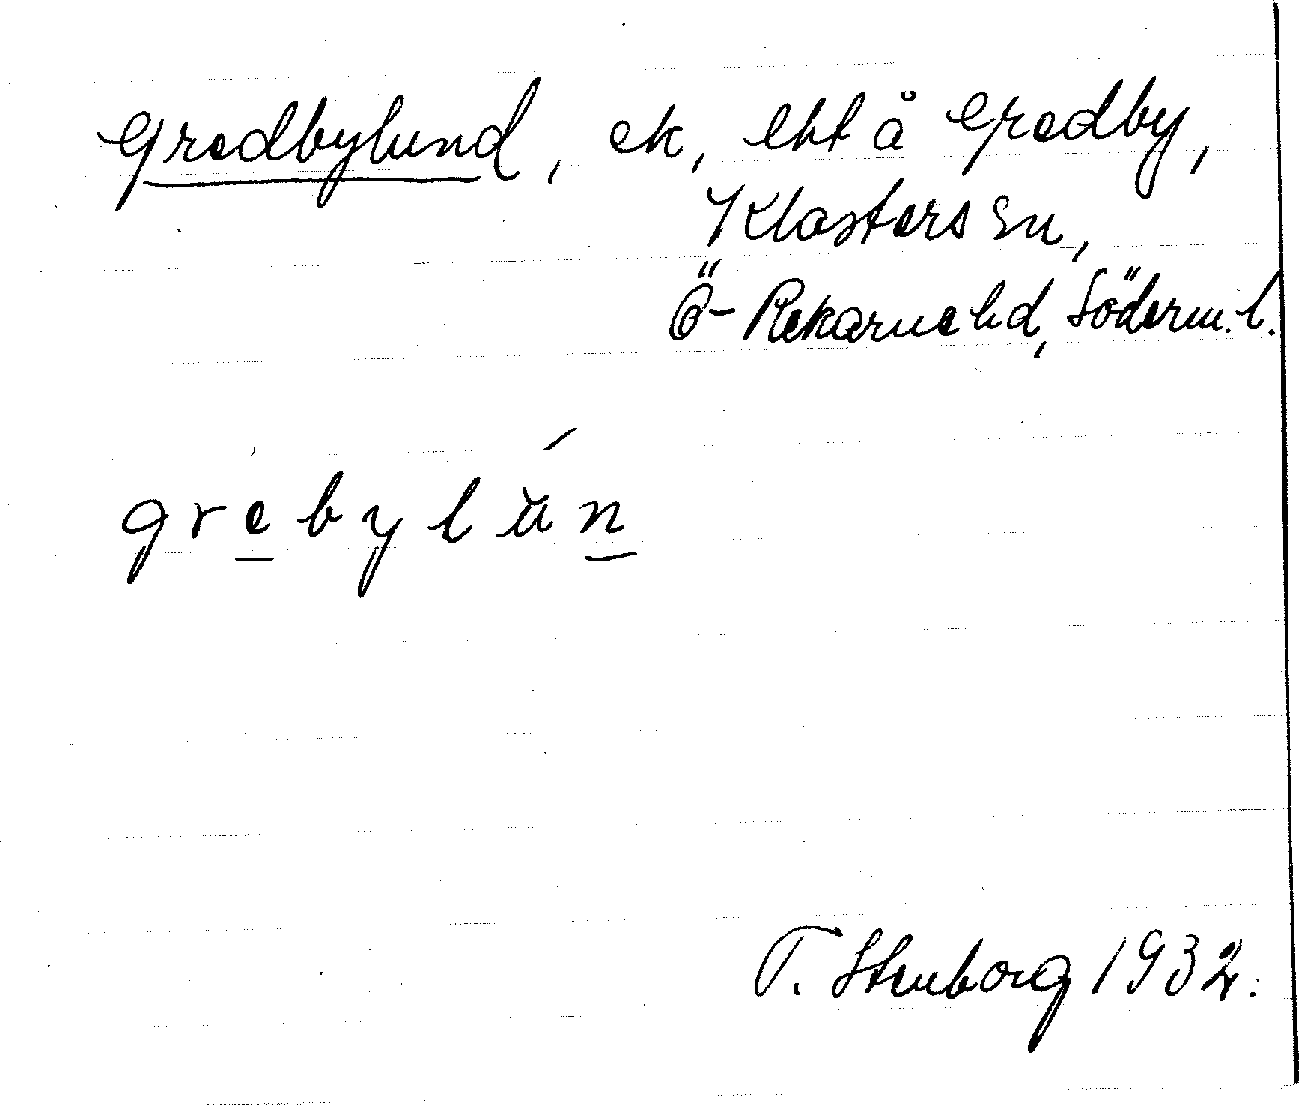 Gredbylund, ek, ekt å Gredby,
Klosters sn,
Ö-Rekarne hd, Söderm. l.
grebylún
T. Stenborg 1932.